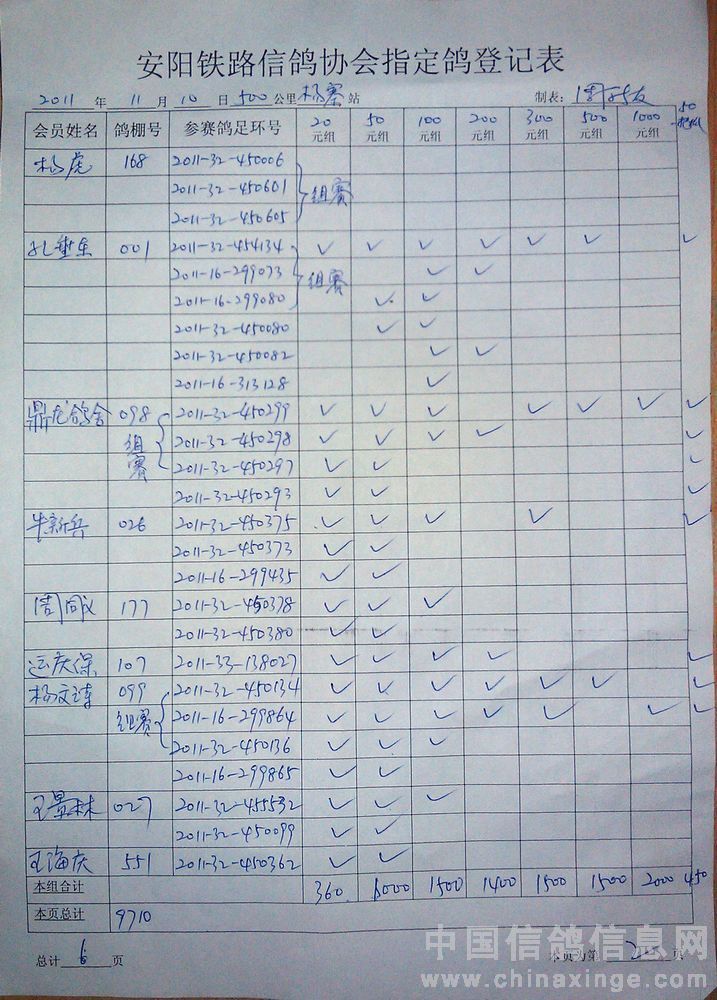 安阳铁路信鸽协会指定鸽登记表
2011 年 11 月 10 日 500 公里 杨寨 站 制表:
会员姓名 鸽棚号 参赛鸽足环号 20元组 50元组 100元组 200元组 300元组 500元组 1000元组 50
杨虎 168 2011-32-450006
2011-32-450601 组赛
2011-32-450605
001 2011-32-454134 ✓ ✓ ✓ ✓ ✓ ✓ ✓
2011-16-299073 组赛 ✓ ✓
2011-16-299080 ✓ ✓
2011-32-450080 ✓ ✓
2011-32-450082 ✓ ✓
2011-16-313128 ✓
鼎龙鸽舍 098 2011-32-450299 ✓ ✓ ✓ ✓ ✓ ✓ ✓
组赛 2011-32-450298 ✓ ✓ ✓ ✓ ✓
2011-32-450297 ✓ ✓ ✓
2011-32-450293 ✓ ✓ ✓
牛新兵 026 2011-32-450375 ✓ ✓ ✓ ✓ ✓
2011-32-450373 ✓ ✓
2011-16-299435 ✓ ✓
周同义 177 2011-32-450378 ✓ ✓ ✓
2011-32-450380 ✓ ✓
运庆保 107 2011-33-138027 ✓ ✓ ✓ ✓ ✓
杨文涛 099 2011-32-450134 ✓ ✓ ✓ ✓ ✓ ✓ ✓
组赛 2011-16-299864 ✓ ✓ ✓ ✓ ✓ ✓ ✓
2011-32-450136 ✓ ✓
2011-16-299865 ✓ ✓
王景林 027 2011-32-455532 ✓ ✓ ✓
2011-32-450099 ✓ ✓
王海庆 551 2011-32-450362 ✓ ✓
本组合计 360 1000 1500 1400 1500 1500 2000 450
本页总计 9710
总计 6 页 本页为第 2 页
中国信鸽信息网
www.chinaxinge.com